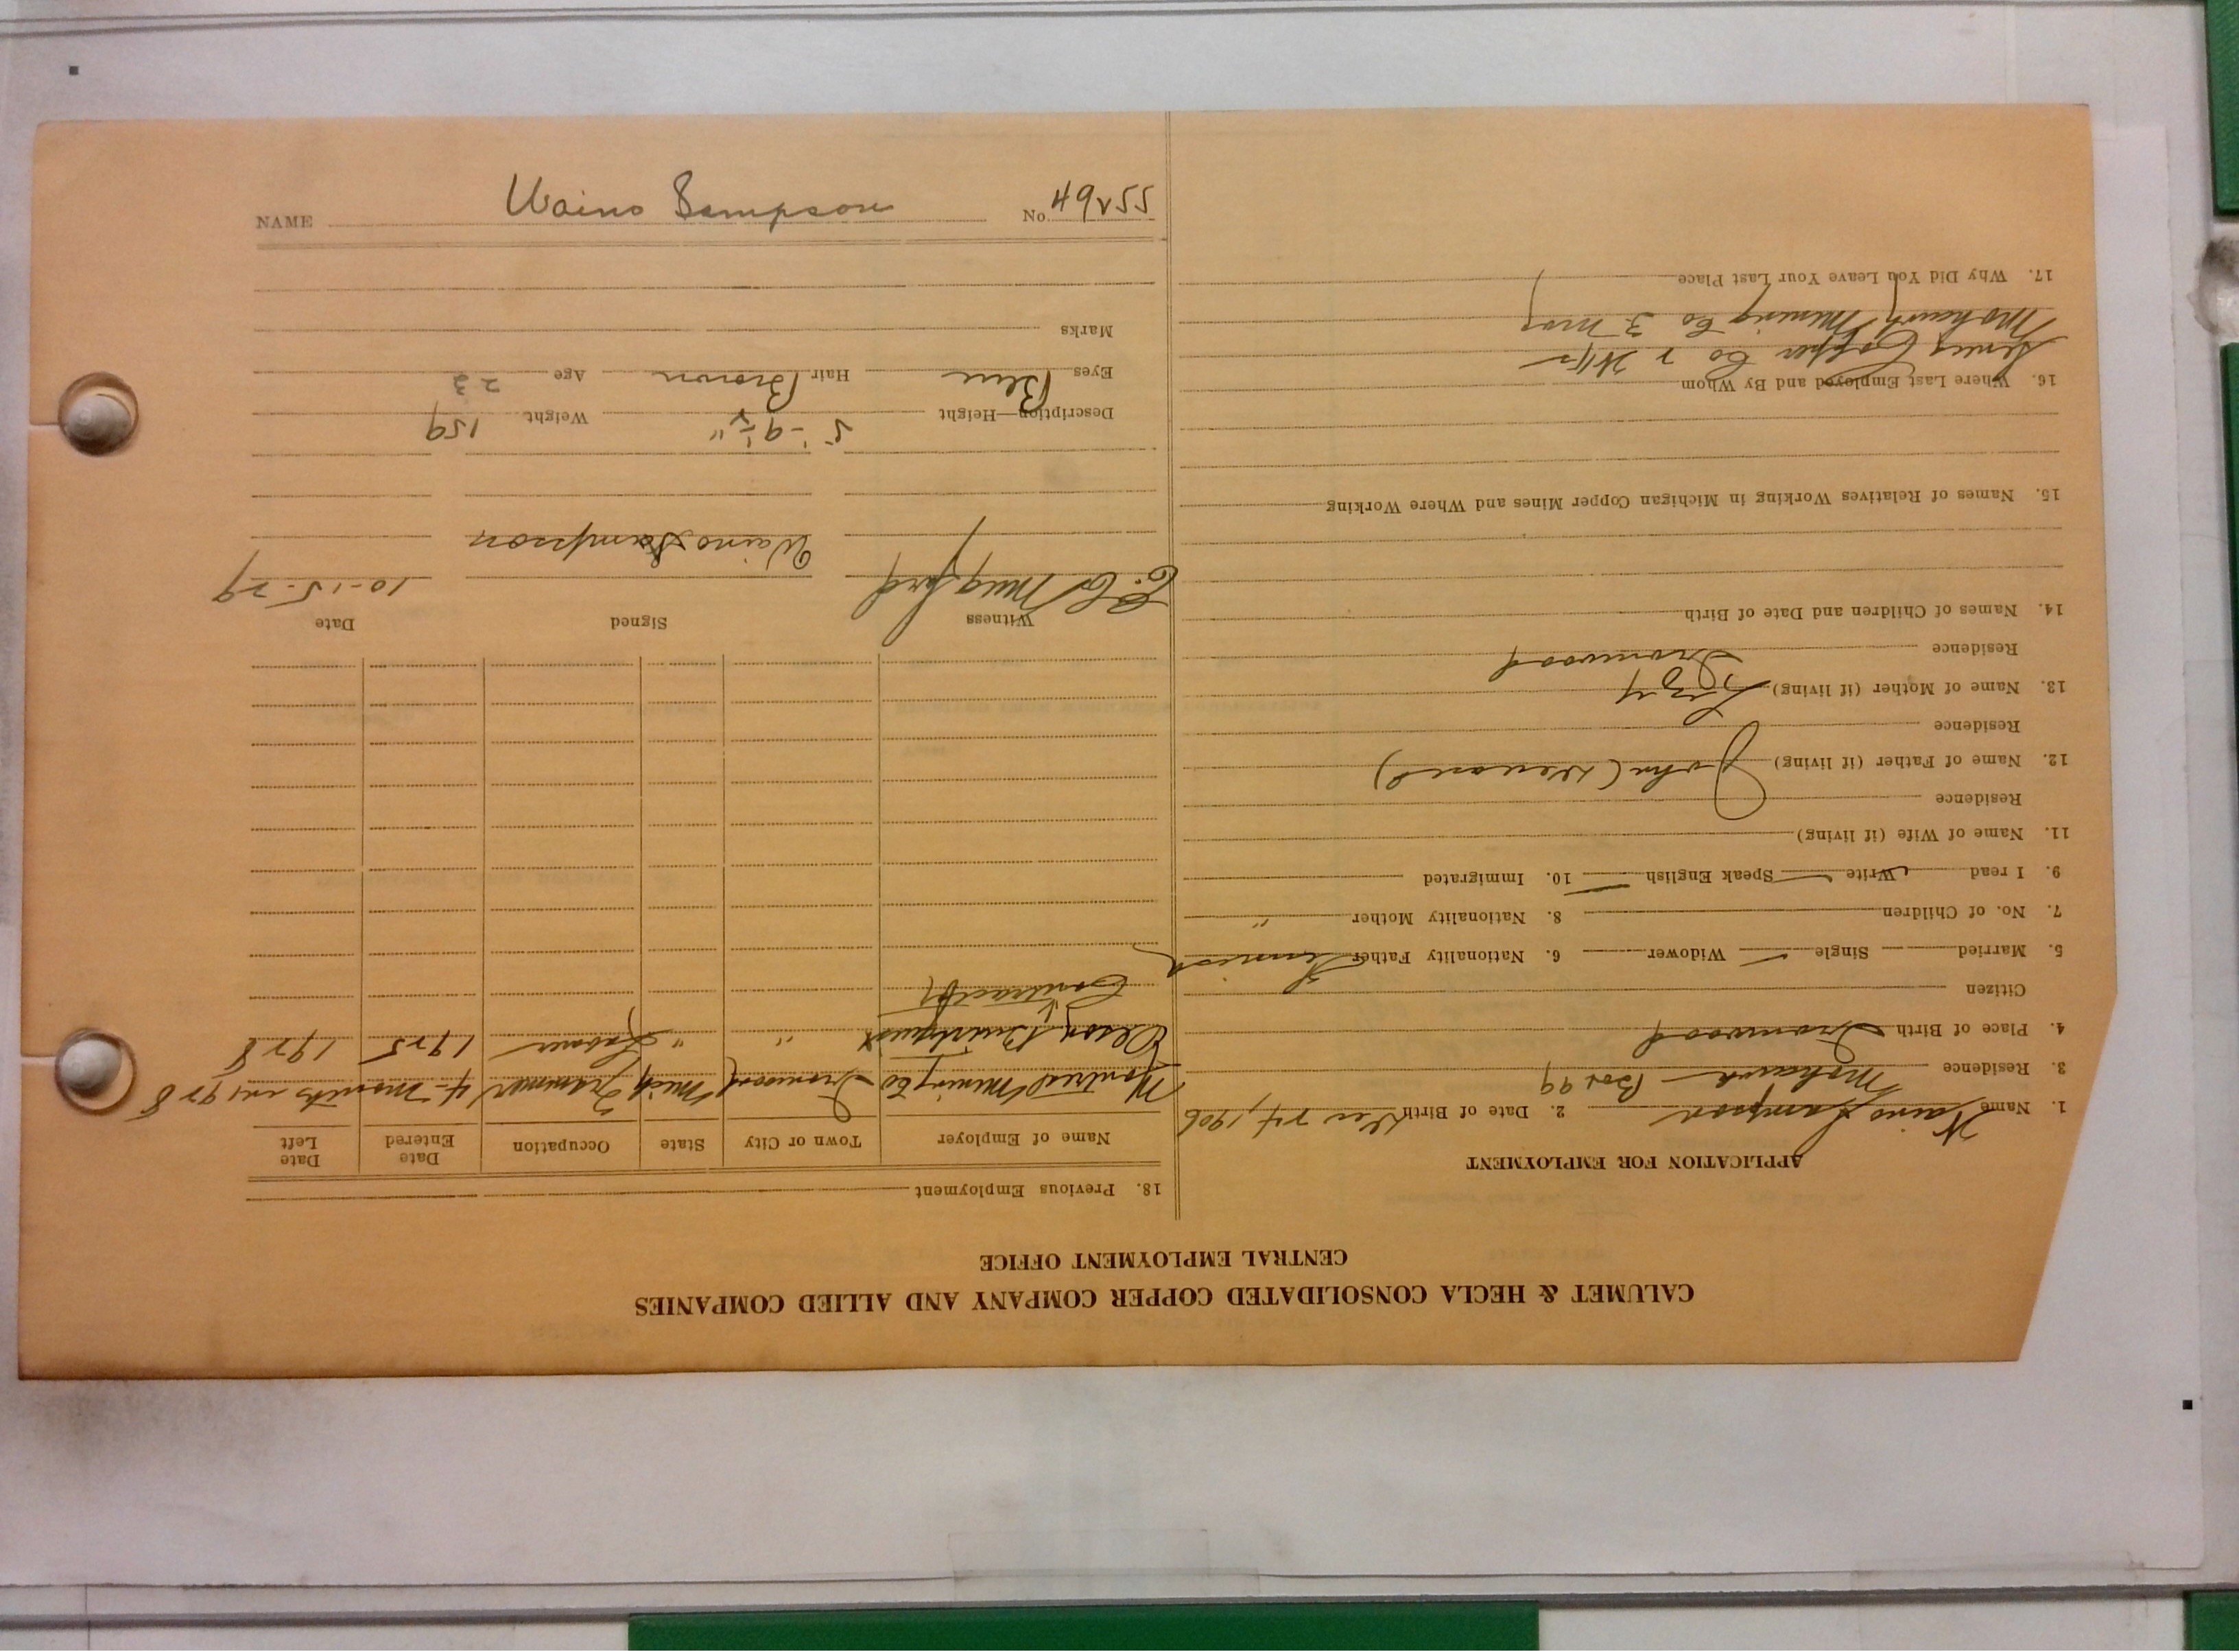 CALUMET & HECLA CONSOLIDATED COPPER COMPANY AND ALLIED COMPANIES
CENTRAL EMPLOYMENT OFFICE
APPLICATION FOR EMPLOYMENT
1. Name Waino Sampson 2. Date of Birth Dec 24, 1906
3. Residence Mohawk Box 99
4. Place of Birth Ironwood
Citizen
5. Married Single ✓ Widower 6. Nationality Father Finnish
7. No. of Children 8. Nationality Mother "
9. I read ✓ Write ✓ Speak English ✓ 10. Immigrated
11. Name of Wife (if living)
Residence
12. Name of Father (if living) John (Deceased)
Residence
13. Name of Mother (if living) Lizzy
Residence Ironwood
14. Names of Children and Date of Birth
15. Names of Relatives Working in Michigan Copper Mines and Where Working
16. Where Last Employed and By Whom
Copper Co 2
Mohawk Mining Co 3 mos
17. Why Did You Leave Your Last Place
18. Previous Employment
Name of Employer Town or City State Occupation Date Entered Date Left
Montreal Mining Co Ironwood Mich Trammer 4 months in 1928
Olson " " Laborer 1925 1928
Contractor
Witness Signed Date
C. C. Mugford Waino Sampson 10-15-29
Description—Height 5'-9½" Weight 159
Eyes Blue Hair Brown Age 23
Marks
NAME Waino Sampson No. 49255